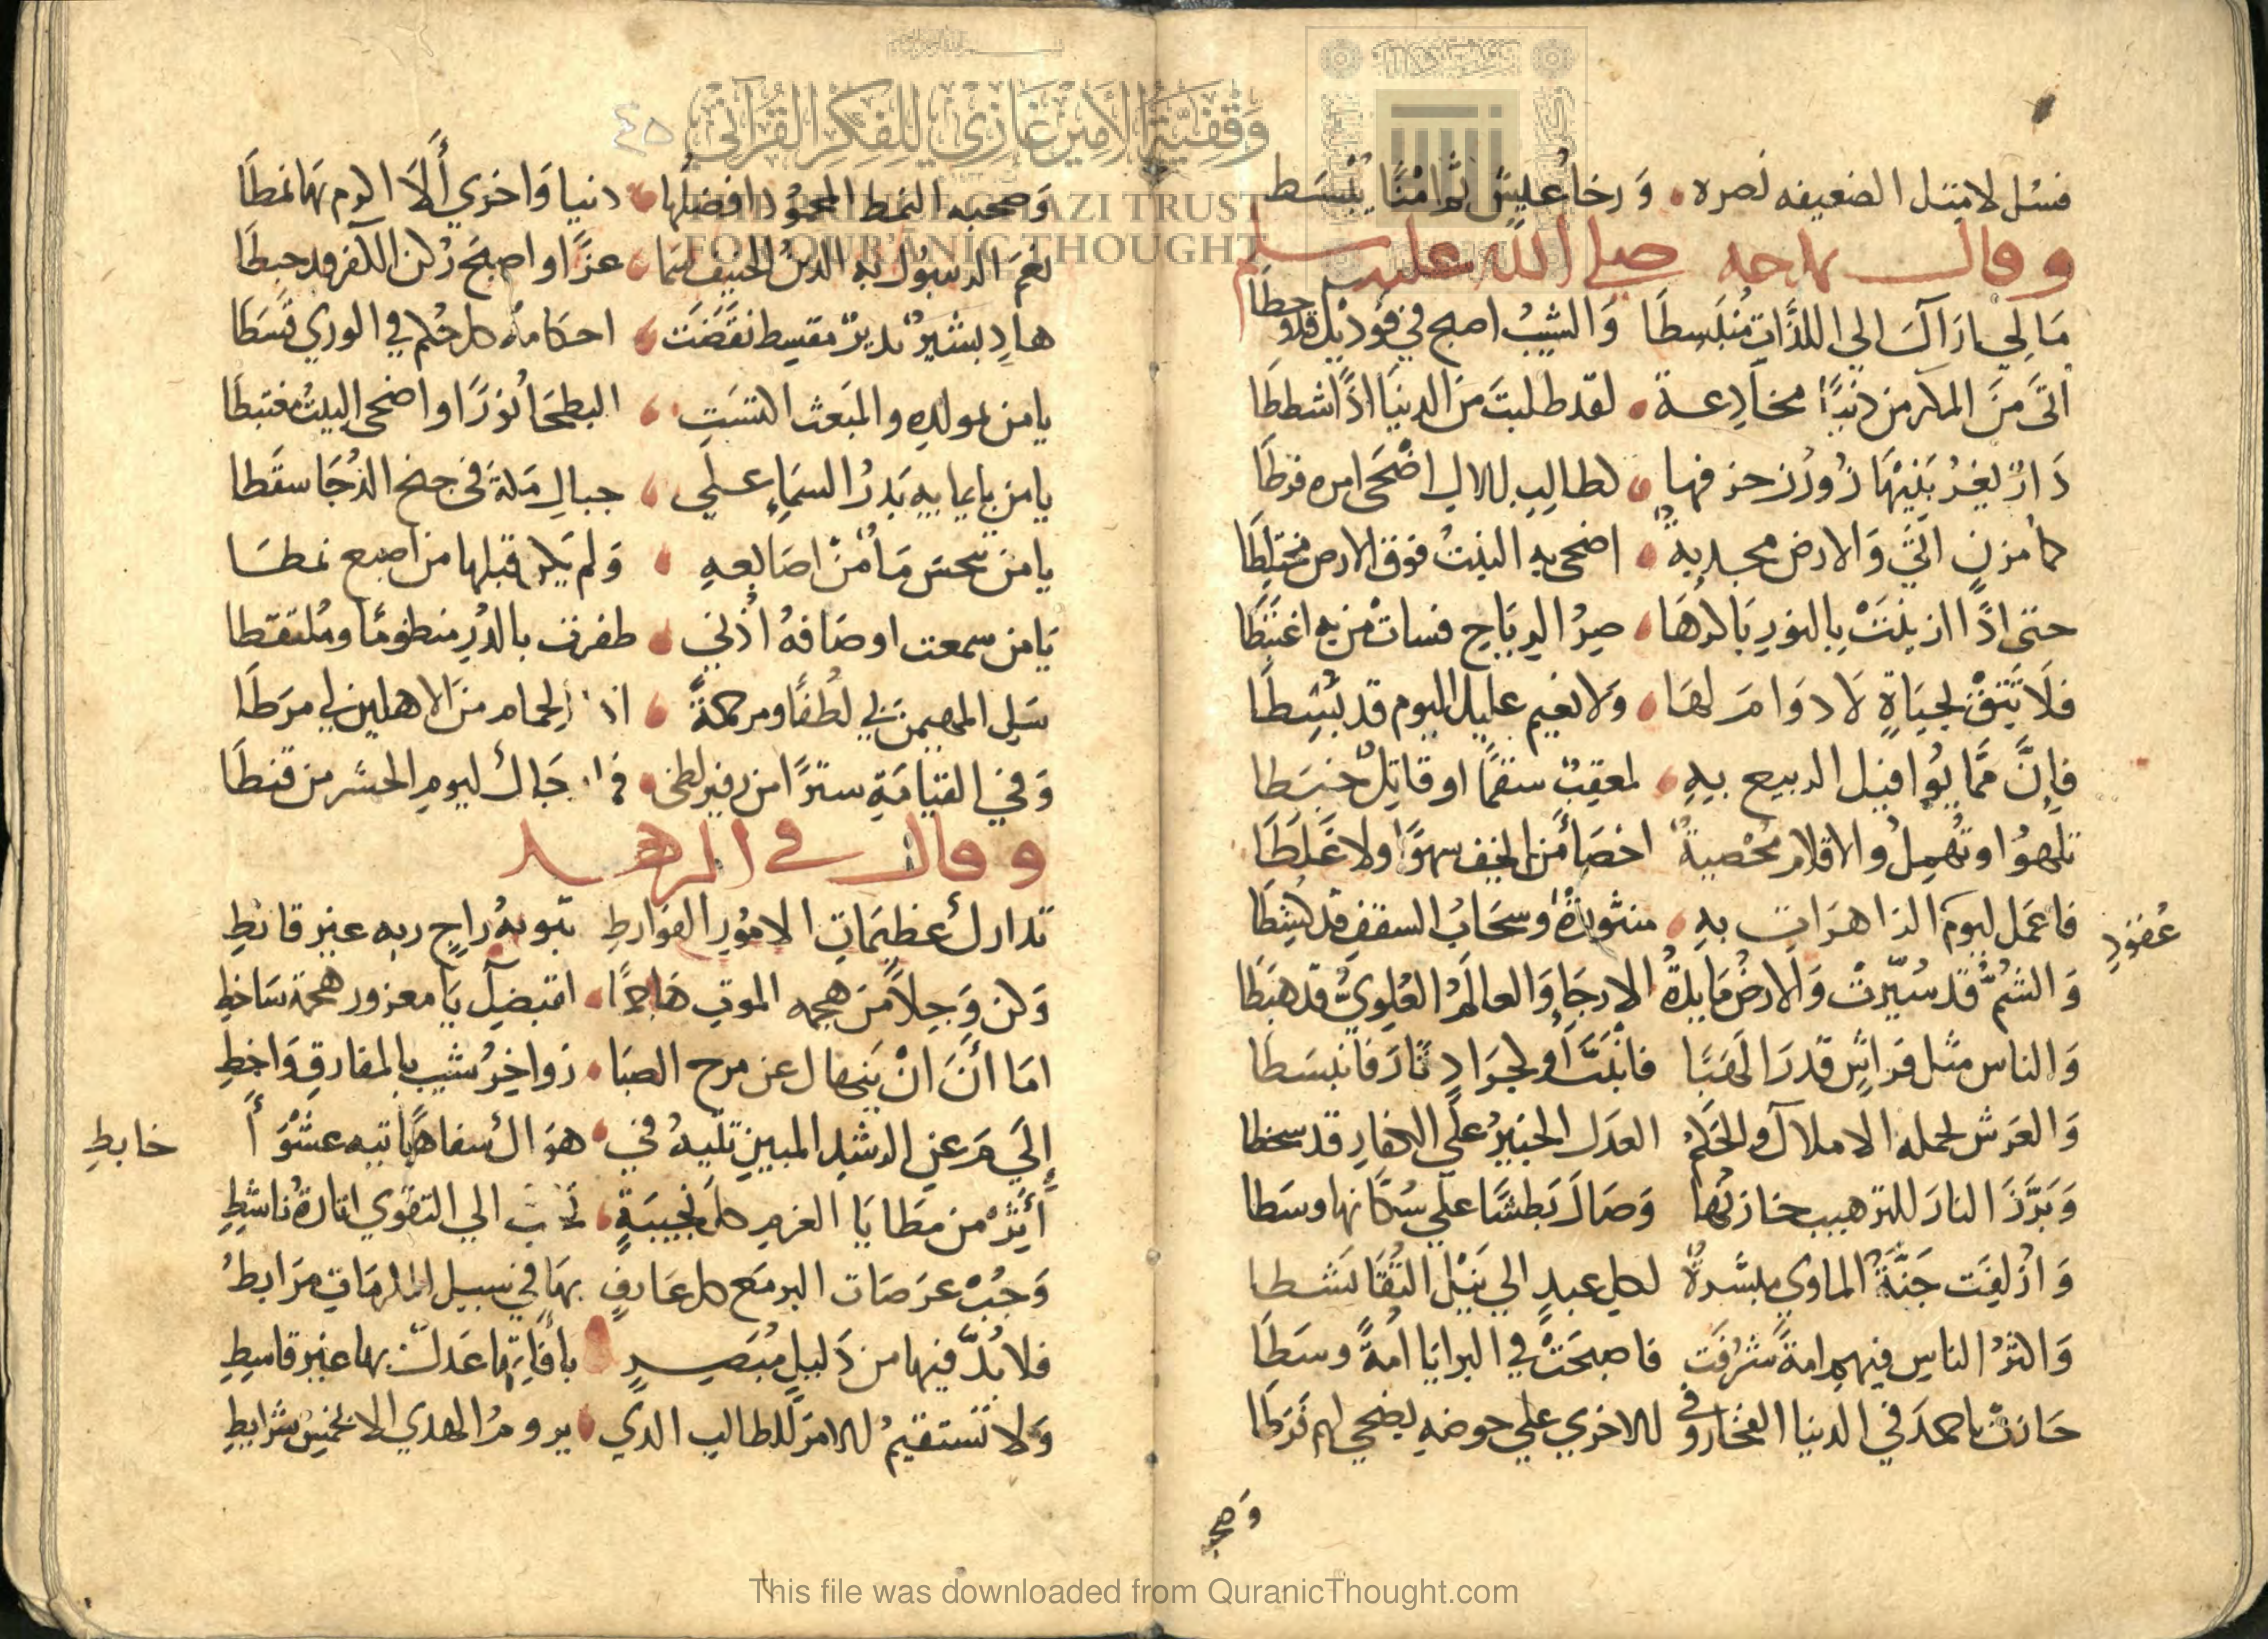 فسل لامتل الضعيفه نصره ورخا عيش ثم امنا يبسط
وقال يمدحه صلي الله عليه وسلم
مَالِي ارَاكَ الي اللذَّاتِ مُنبَسِطَا وَالشيبُ اصبح في فَوديْك قد وخطَا
اتَى مَنَ المكر من دنيًا مخادِعة لقد طلبتَ مَن الدنيَا اذًا شططَا
دَارٌ يغرُ بَنِيْهَا زُورُ زخرفها لطالِبٍ للال اضْحَى امره فرطَا
كمُزنٍ اتَى وَالارض مجدبةٌ اضحى به النبتُ فوق الارض مختلِطَا
حتى اذَا ازينَتْ بالنورِ بَاكرهَا صِرُ الرِيَاحِ فسات من به اغتبَطَا
فلَا تَثِقْ لحيَاةٍ لَا دوَامَ لهَا وَلا نعيم عليك اليوم قد بُسِطَا
فإِنَّ ممَّا يُوافيك الربيع بِهِ لمعقِبٌ سقمًا او قاتِلٌ خبَطا
تلهوُا وتُهمِلُ والاقلام مُحْصِيةٌ اخصَا مَن الخف سهوًا ولا غَلَطَا
فاعمَل ليومَ الزاهرَات بهِ منثورةٌ وسحَابُ السقفِ قد كُشِطَا
عُقودِ
وَالشمُّ قد سُيّرتْ وَالارضُ مَايدةُ الارجَا وَالعالَمُ العُلوِيُّ قد هبَطَا
وَالناس مثل فراشٍ قدرَا لهَبًا فانبَتَّ اولجرَادٍ ثارَ فانبسَطا
وَالعَرش لحمله الاملاك والحَكَمُ العدَل الخبيرُ علَى الكفارِ قد سخطا
وَبَرَّزَ النارَ للترهيب خازنُها وَصَالَ بَطشًا علَى سُكَّانها وسَطا
وَازلِفَت جَنَّةُ الماوي مبشرةٌ لكل عبدٍ الي نَيْل التُقَا نشطا
وَاكثرُ الناسِ فيهم امةٌ شرُفَت فاصبحَتْ في البرايَا امةً وسَطَا
حَازتْ باحمدَ في الدنيا الفخار وفي للاخري علي حوضه يضحي لهم فَرَطَا
وَصح
٤٥
وَصحبه النمط المحمُود افضلُها دنيا وَاخري أَلَا اكرم بهَا نمطَا
نعَم الرسُول به الدينُ الحنِيف سَمَا عزًا واصبَح رُكن الكفر قد حبِطَا
هادٍ بشيرٌ نذيرٌ مقسِط نقَضَت احكامُه كل حُكم في الوري قَسَطَا
يا من بمولدِه والمَبعث اكتسَتِ البطحَا نُورًا واضحى البيتُ مغتبطَا
يا من بايمايِهِ بَدرُ السمَاءِ علَى جبالِ مَكةَ في جنح الدُجَا سقَطا
يا من تبجسَ مَاءٌ مُنْ اصَابعِهِ وَلم يَكن قبلها من اصبع نمطسَا
يَا من سمعت اوصَافهُ اُذُني ظفرت بالدُرِ منظومًا ومُلتقَطا
سَلِ المهيمنَ لي لُطفًا ومرحمَةً اذا الحمام مَن الاهلين لي مرَطَا
وَفي القيَامَةِ سترًا من زفير لظى فما رجَاك ليومِ الحشر من قنطَا
وقال في الزهد
تدارك عظيمَاتِ الامُورِ الفوارطِ بتوبةُ راجٍ ربه غير قانطِ
وَكن وَجِلًا مَن هجمه الموتِ هَاجمًا
امَا أَنَ انْ يَنهَاك عن مرح الصبَا زواجِرُ شيبٍ بالمفارقِ وَاخِطِ
إِلَي مَ عنِ الرشدِ المبينِ تتيهُ في هوَاك سفاهًا تيه عشْوَا
خابطِ
أَثِرْ من مَطَايَا العزمِ كل نجيبَةٍ الي التقوي اثارةُ ناشِطِ
وَجُبْ عرَصَات البر مَع كل عَارفٍ بهَا في سبيل المكرمَاتِ مرَابطُ
فلا بُدَّ فيها من دَليلٍ مُبَصِرٍ بافَاتِها عَدلٌ بها غير قاسِطِ
وَلا تستقيمُ للامر للطالب الدي يرومُ الهدي الا بخمسِ شرايطِ
وقفية الأمير غازي للفكر القرآني
THE PRINCE GHAZI TRUST
FOR QUR'ANIC THOUGHT
This file was downloaded from QuranicThought.com